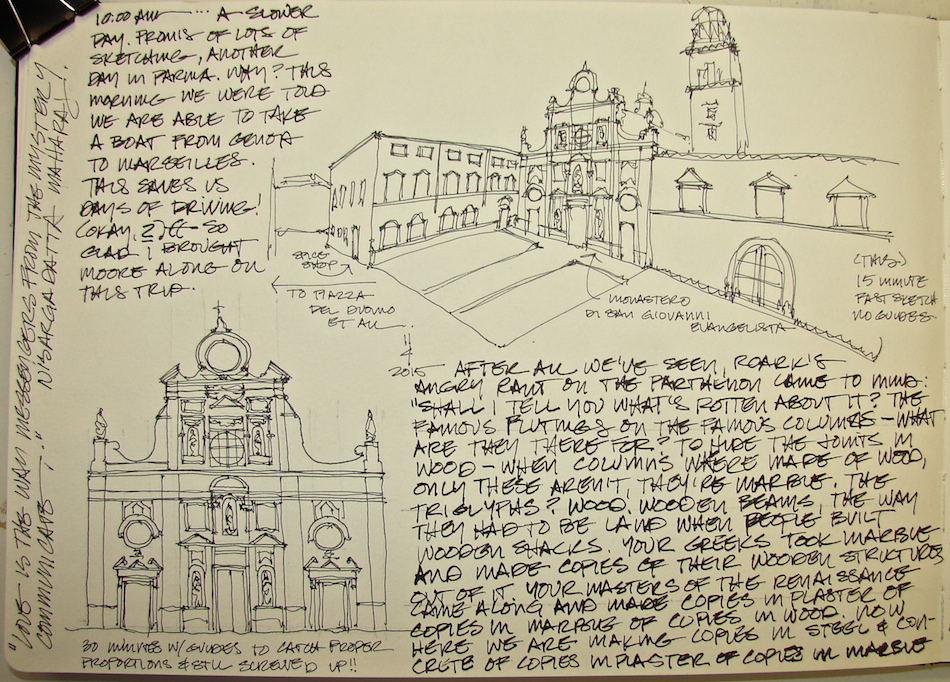 10:00 AM ... A SLOWER
DAY. PROMIS OF LOTS OF
SKETCHING, ANOTHER
DAY IN PARMA. WHY? THIS
MORNING WE WERE TOLD
WE ARE ABLE TO TAKE
A BOAT FROM GENOA
TO MARSEILLES.
THIS SAVES US
DAYS OF DRIVING!
(OKAY, 2) SO
GLAD I BROUGHT
MOORE ALONG ON
THIS TRIP.
"LOVE IS THE WAY MESSENGERS FROM THE MYSTERY
COMMUNICATE." NISARGADATTA MAHARAJ.
SPICE
SHOP
TO PIAZZA
DEL DUOMO
ET AL.
MONASTERO
DI SAN GIOVANNI
EVANGELISTA
(THIS)
15 MINUTE
FAST SKETCH
NO GUIDES.
11
4
2015
AFTER ALL WE'VE SEEN, ROARK'S
ANGRY RANT ON THE PARTHENON CAME TO MIND:
"SHALL I TELL YOU WHAT'S ROTTEN ABOUT IT? THE
FAMOUS FLUTINGS ON THE FAMOUS COLUMNS - WHAT
ARE THEY THERE FOR? TO HIDE THE JOINTS IN
WOOD - WHEN COLUMNS WHERE MADE OF WOOD,
ONLY THESE AREN'T, THEY'RE MARBLE. THE
TRIGLYPHS? WOOD. WOODEN BEAMS, THE WAY
THEY HAD TO BE LAND WHEN PEOPLE BUILT
WOODEN SHACKS. YOUR GREEKS TOOK MARBLE
AND MADE COPIES OF THEIR WOODEN STRUKTURES
OUT OF IT. YOUR MASTERS OF THE RENAISSANCE
CAME ALONG AND MADE COPIES IN PLASTER OF
COPIES IN MARBLE OF COPIES IN WOOD. NOW
HERE WE ARE MAKING COPIES IN STEEL & CON-
CRETE OF COPIES IN PLASTER OF COPIES IN MARBLE
30 MINUTES W/GUIDES TO CATCH PROPER
PROPORTIONS & STILL SCREWED UP!!